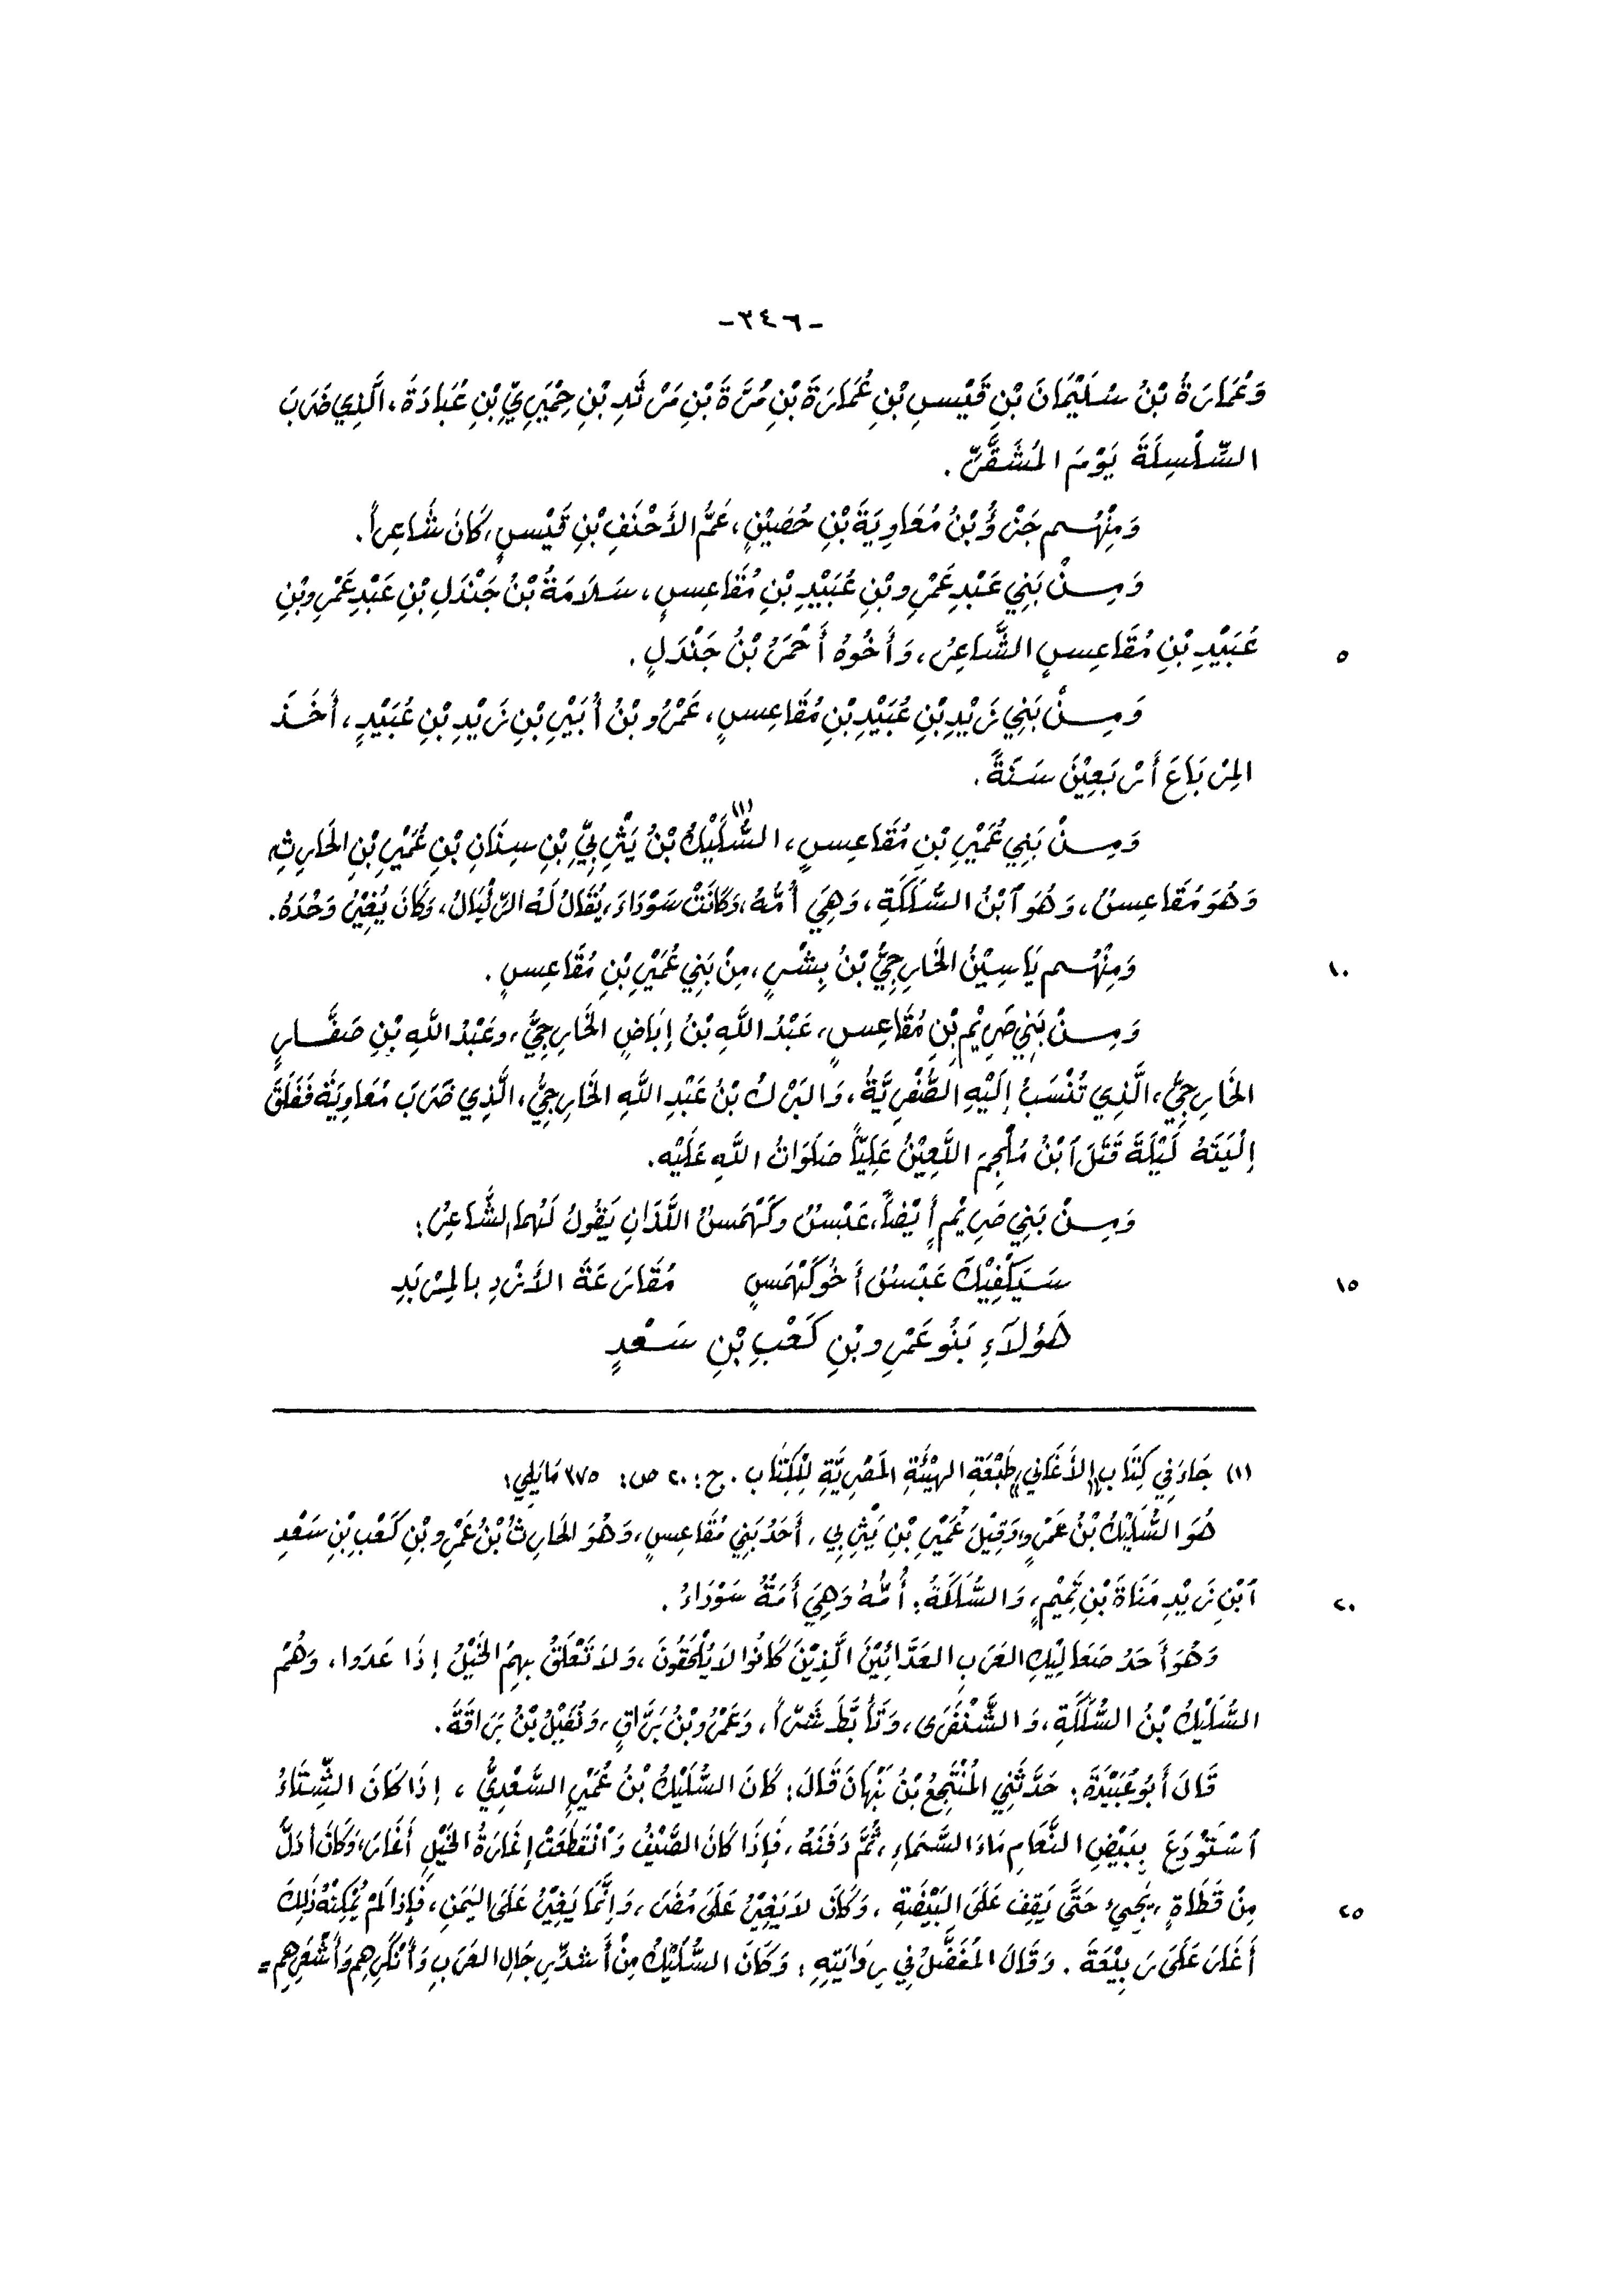 -٣٤٦-
وَعُمَارَةُ بْنُ سُلَيْمَانَ بْنِ قَيْسِ بْنِ عُمَارَةَ بْنِ مُرَّةَ بْنِ مَرْثَدِ بْنِ حِمْيَرِيِّ بْنِ عُبَادَةَ، الَّذِي ضَرَبَ
السِّلْسِلَةَ يَوْمَ المُشَقَّرِ .
وَمِنْهُم جَزْؤُ بْنُ مُعَاوِيَةَ بْنِ حُصَيْنٍ، عَمُّ الأَحْنَفِ بْنِ قَيْسٍ، كَانَ شَاعِراً.
وَمِنْ بَنِي عَبْدِ عَمْرِو بْنِ عُبَيْدِ بْنِ مُقَاعِسٍ، سَلَامَةُ بْنُ جَنْدَلِ بْنِ عَبْدِ عَمْرِو بْنِ
٥ عُبَيْدِ بْنِ مُقَاعِسٍ الشَّاعِرُ، وَأَخُوهُ أَحْمَرُ بْنُ جَنْدَلٍ .
وَمِنْ بَنِي زَيْدِ بْنِ عُبَيْدِ بْنِ مُقَاعِسٍ، عَمْرُو بْنُ أُبَيْرِ بْنِ زَيْدِ بْنِ عُبَيْدٍ، أَخَذَ
المِرْبَاعَ أَرْبَعِيْنَ سَنَةً .
وَمِنْ بَنِي عُمَيْرِ بْنِ مُقَاعِسٍ، السُّلَيْكُ (١) بْنُ يَثْرِبِيِّ بْنِ سِنَانِ بْنِ عُمَيْرِ بْنِ الحَارِثِ،
وَهُوَ مُقَاعِسٌ، وَهُوَ ٱبْنُ السُّلَكَةِ، وَهِيَ أُمُّهُ، وَكَانَتْ سَوْدَاءَ، يُقَالُ لَهُ الرِّئْبَالُ، وَكَانَ يُغِيْرُ وَحْدَهُ.
١٠ وَمِنْهُم يَاسِيْنُ الخَارِجِيُّ بْنُ بِشْرٍ، مِنْ بَنِي عُمَيْرِ بْنِ مُقَاعِسٍ .
وَمِنْ بَنِي صَرِيْمِ بْنِ مُقَاعِسٍ، عَبْدُ اللَّهِ بْنُ إِبَاضٍ الخَارِجِيُّ، وَعَبْدُ اللَّهِ بْنِ صَفَّارٍ
الخَارِجِيُّ، الَّذِي تُنْسَبُ إِلَيْهِ الصُّفْرِيَّةُ، وَالبَرْكُ بْنُ عَبْدِ اللَّهِ الخَارِجِيُّ، الَّذِي ضَرَبَ مُعَاوِيَةَ فَفَلَقَ
إِلْيَتَهُ لَيْلَةَ قَتَلَ ٱبْنُ مُلْجِمَ اللَّعِيْنُ عَلِيَّاً صَلَوَاتُ اللَّهِ عَلَيْهِ.
وَمِنْ بَنِي صَرِيْمٍ أَيْضَاً، عَبْسٌ وَكَهْمَسٌ اللَّذَانِ يَقُولُ لَهُمَا الشَّاعِرُ:
١٥ سَيَكْفِيْكَ عَبْسٌ أَخُو كَهْمَسٍ مُقَارَعَةَ الأَزْدِ بِالمِرْبَدِ
هَؤُلَاءِ بَنُو عَمْرِو بْنِ كَعْبِ بْنِ سَعْدٍ
(١) جَاءَ فِي كِتَابِ «الأَغَانِي» طَبْعَةِ الهَيْئَةِ المَصْرِيَّةِ لِلْكِتَابِ . ج: ٢٠ ص: ٣٧٥ مَا يَلِي:
هُوَ السُّلَيْكُ بْنُ عَمْرٍو، وَقِيْلَ عُمَيْرِ بْنِ يَثْرِبِي، أَحَدُ بَنِي مُقَاعِسٍ، وَهُوَ الحَارِثُ بْنُ عَمْرِو بْنِ كَعْبِ بْنِ سَعْدِ
٢٠ ٱبْنِ زَيْدِ مَنَاةَ بْنِ تَمِيْمٍ، وَالسُّلَكَةُ: أُمُّهُ وَهِيَ أَمَةٌ سَوْدَاءُ .
وَهُوَ أَحَدُ صَعَالِيْكِ العَرَبِ العَدَّائِيْنَ الَّذِيْنَ كَانُوا لَا يُلْحَقُونَ، وَلَا تَعْلَقُ بِهِمُ الخَيْلُ إِذَا عَدَوا، وَهُمْ
السُّلَيْكُ بْنُ السُّلَكَةِ، وَالشَّنْفَرَى، وَتَأَبَّطَ شَرّاً، وَعَمْرُو بْنُ بَرَّاقٍ، وَنُفَيْلُ بْنُ بَرَاقَةَ .
قَالَ أَبُو عُبَيْدَةَ: حَدَّثَنِي المُنْتَجِعُ بْنُ نَبْهَانَ قَالَ: كَانَ السُّلَيْكُ بْنُ عُمَيْرٍ السَّعْدِيُّ ، إِذَا كَانَ الشِّتَاءُ
ٱسْتَوْدَعَ بِبَيْضِ النَّعَامِ مَاءَ السَّمَاءِ، ثُمَّ دَفَنَهُ، فَإِذَا كَانَ الصَّيْفُ وَٱنْقَطَعَتْ إِغَارَةُ الخَيْلِ أَغَارَ، وَكَانَ أَدَلَّ
٢٥ مِنْ قَطَاةٍ، يَجِيءُ حَتَّى يَقِفَ عَلَى البَيْضَةِ ، وَكَانَ لَا يَغِيْرُ عَلَى مُضَرَ، وَإِنَّمَا يَغِيْرُ عَلَى اليَمَنِ، فَإِذَا لَمْ يُمْكِنْهُ ذَلِكَ
أَغَارَ عَلَى رَبِيْعَةَ . وَقَالَ المُفَضَّلُ فِي رِوَايَتِهِ: وَكَانَ السُّلَيْكُ مِنْ أَشَدِّ رِجَالِ العَرَبِ وَأَنْكَرِهِم وَأَشْعَرِهِم =